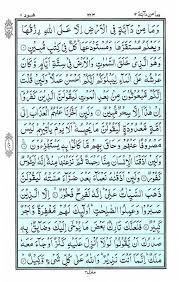 وَمَا مِنْ دَآبَّةٍ فِي الْأَرْضِ إِلَّا عَلَى اللّٰهِ رِزْقُهَا
وَيَعْلَمُ مُسْتَقَرَّهَا وَمُسْتَوْدَعَهَا ۚ كُلٌّ فِيْ كِتٰبٍ مُّبِيْنٍ
وَهُوَ الَّذِيْ خَلَقَ السَّمٰوٰتِ وَالْأَرْضَ فِيْ سِتَّةِ أَيَّامٍ وَّكَانَ
عَرْشُهٗ عَلَى الْمَآءِ لِيَبْلُوَكُمْ أَيُّكُمْ أَحْسَنُ عَمَلًا ۗ وَلَئِنْ
قُلْتَ إِنَّكُمْ مَّبْعُوْثُوْنَ مِنْۢ بَعْدِ الْمَوْتِ لَيَقُوْلَنَّ الَّذِيْنَ
كَفَرُوْٓا إِنْ هٰذَآ إِلَّا سِحْرٌ مُّبِيْنٌ وَلَئِنْ أَخَّرْنَا عَنْهُمُ الْعَذَابَ
إِلٰٓى أُمَّةٍ مَّعْدُوْدَةٍ لَّيَقُوْلُنَّ مَا يَحْبِسُهٗ ۗ أَلَا يَوْمَ يَأْتِيْهِمْ لَيْسَ
مَصْرُوْفًا عَنْهُمْ وَحَاقَ بِهِمْ مَّا كَانُوْا بِهٖ يَسْتَهْزِءُوْنَ
وَلَئِنْ أَذَقْنَا الْإِنْسَانَ مِنَّا رَحْمَةً ثُمَّ نَزَعْنٰهَا مِنْهُ ۚ إِنَّهٗ
لَيَئُوْسٌ كَفُوْرٌ وَلَئِنْ أَذَقْنٰهُ نَعْمَآءَ بَعْدَ ضَرَّآءَ مَسَّتْهُ لَيَقُوْلَنَّ
ذَهَبَ السَّيِّاٰتُ عَنِّيْ ۚ إِنَّهٗ لَفَرِحٌ فَخُوْرٌ إِلَّا الَّذِيْنَ
صَبَرُوْا وَعَمِلُوا الصّٰلِحٰتِ ۚ أُولٰٓئِكَ لَهُمْ مَّغْفِرَةٌ وَّأَجْرٌ
كَبِيْرٌ فَلَعَلَّكَ تَارِكٌۢ بَعْضَ مَا يُوْحٰٓى إِلَيْكَ وَضَآئِقٌۢ بِهٖ
صَدْرُكَ أَنْ يَّقُوْلُوْا لَوْلَآ أُنْزِلَ عَلَيْهِ كَنْزٌ أَوْ جَآءَ مَعَهٗ
مَلَكٌ ۗ إِنَّمَآ أَنْتَ نَذِيْرٌ ۗ وَاللّٰهُ عَلٰى كُلِّ شَيْءٍ وَّكِيْلٌ